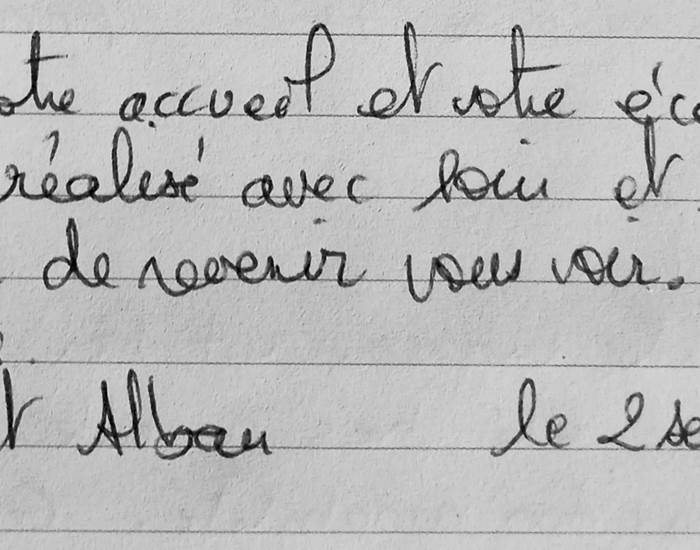 otre accueil et votre éco
réalisé avec soin et
de revenir vous voir.
t Alban le 2 se